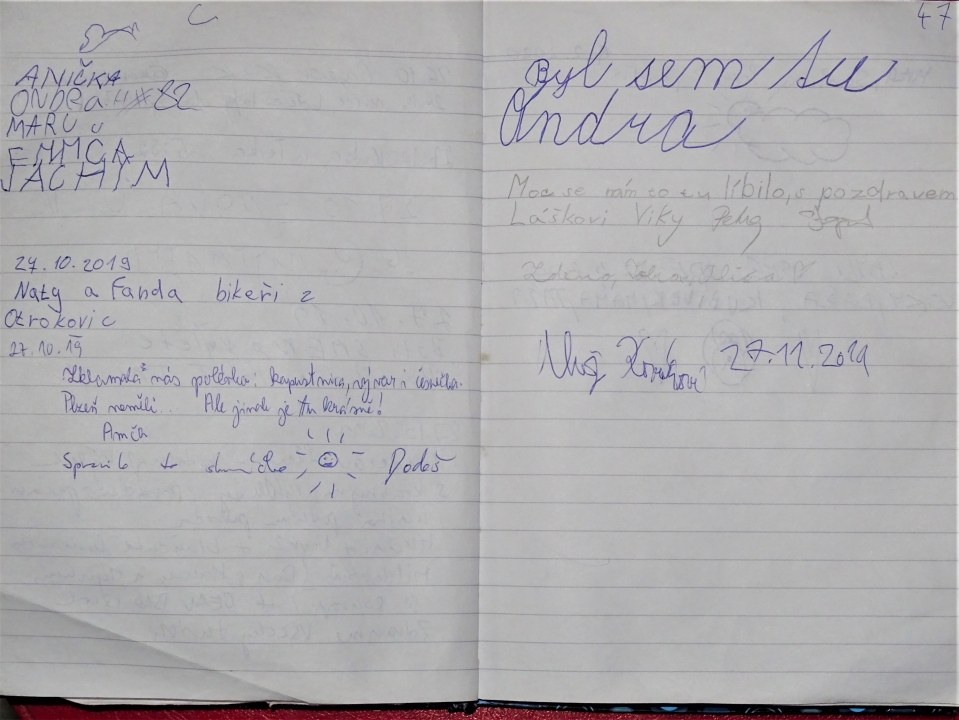 ANIČKA
ONDRa 82
MARU
EMMČA
JÁCHYM
27.10.2019
Naty a Fanda bikeři z
Otrokovic
27.10.19
Zklamala nás polévka: kapustnica, vývar i česnečka.
Plzeň neměli.. Ale jinak je tu krásně!
Amča
Spravilo to sluníčko Dodoš
47
Byl sem tu
Ondra
Moc se nám to tu líbilo, s pozdravem
Láškovi Viky
27.11.2019